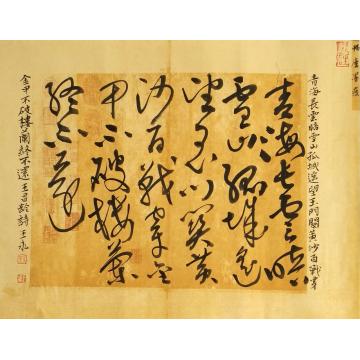 青海長雲暗雪山孤城遥望玉門關黄沙百戰穿
青海長雲暗
雪山孤城遥
望玉門關黄
沙百戰穿金
甲不破樓蘭
終不還
金甲不破樓蘭終不還王昌齡詩王永